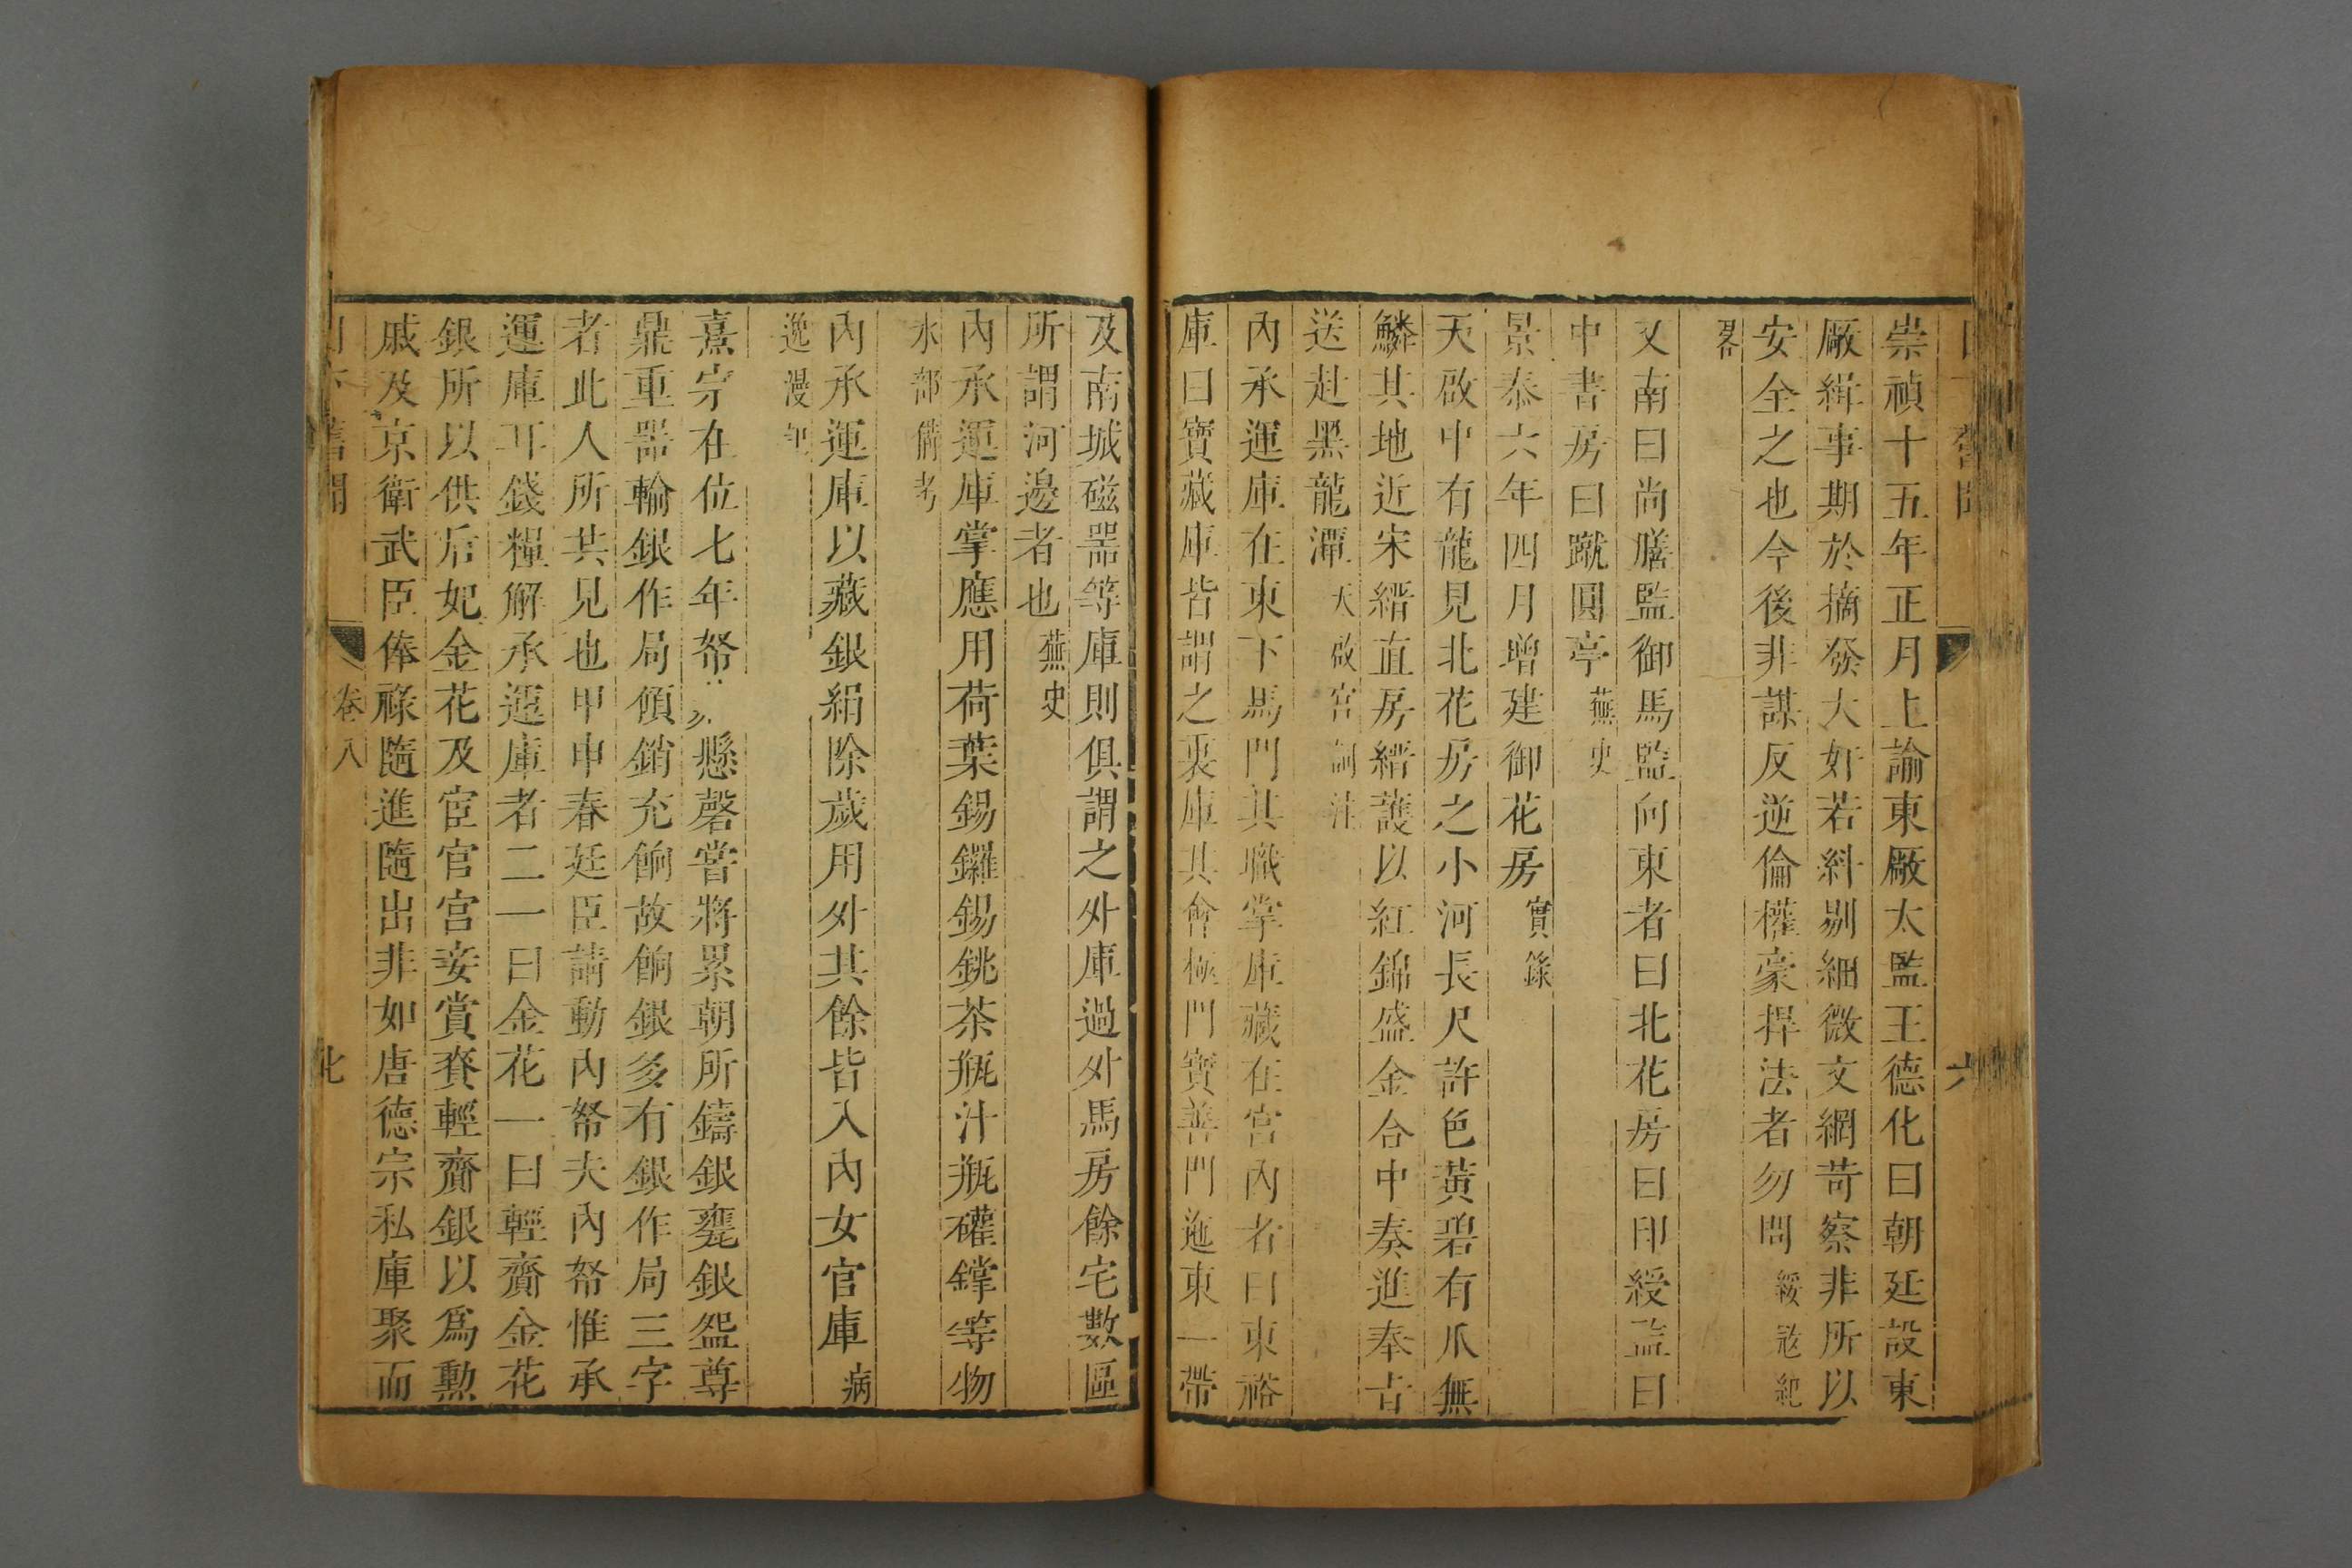 崇禎十五年正月上諭東厰太監王德化曰朝廷設東
厰緝事期於摘發大奸若糾剔細微文網苛察非所以
安全之也今後非謀反逆倫權豪捍法者勿問綏寇紀
畧
又南曰尚膳監御馬監向東者曰北花房曰印綬監曰
中書房曰蹴圓亭蕪史
景泰六年四月增建御花房實錄
天啟中有龍見北花房之小河長尺許色黃碧有爪無
鱗其地近宋縉直房縉護以紅錦盛金合中奏進奉旨
送赴黑龍潭天啟宮詞注
內承運庫在東下馬門其職掌庫藏在宮內者曰東裕
庫曰寶藏庫皆謂之裏庫其會極門寶善門迤東一帶
及南城磁噐等庫則俱謂之外庫過外馬房餘宅數區
所謂河邊者也蕪史
內承運庫掌應用荷葉錫鑼錫銚茶瓶汁瓶礶鐣等物
水部備考
內承運庫以藏銀絹除歲用外其餘皆入內女官庫病
逸漫記
熹宗在位七年帑懸磬嘗將累朝所鑄銀甕銀盌尊
鼎重噐輸銀作局傾銷充餉故餉銀多有銀作局三字
者此人所共見也甲申春廷臣請動內帑夫內帑惟承
運庫耳錢糧解承運庫者二一曰金花一曰輕齎金花
銀所以供后妃金花及宦官宮妾賞賚輕齎銀以爲勳
戚及京衛武臣俸祿隨進隨出非如唐德宗私庫聚而
舊聞
卷八